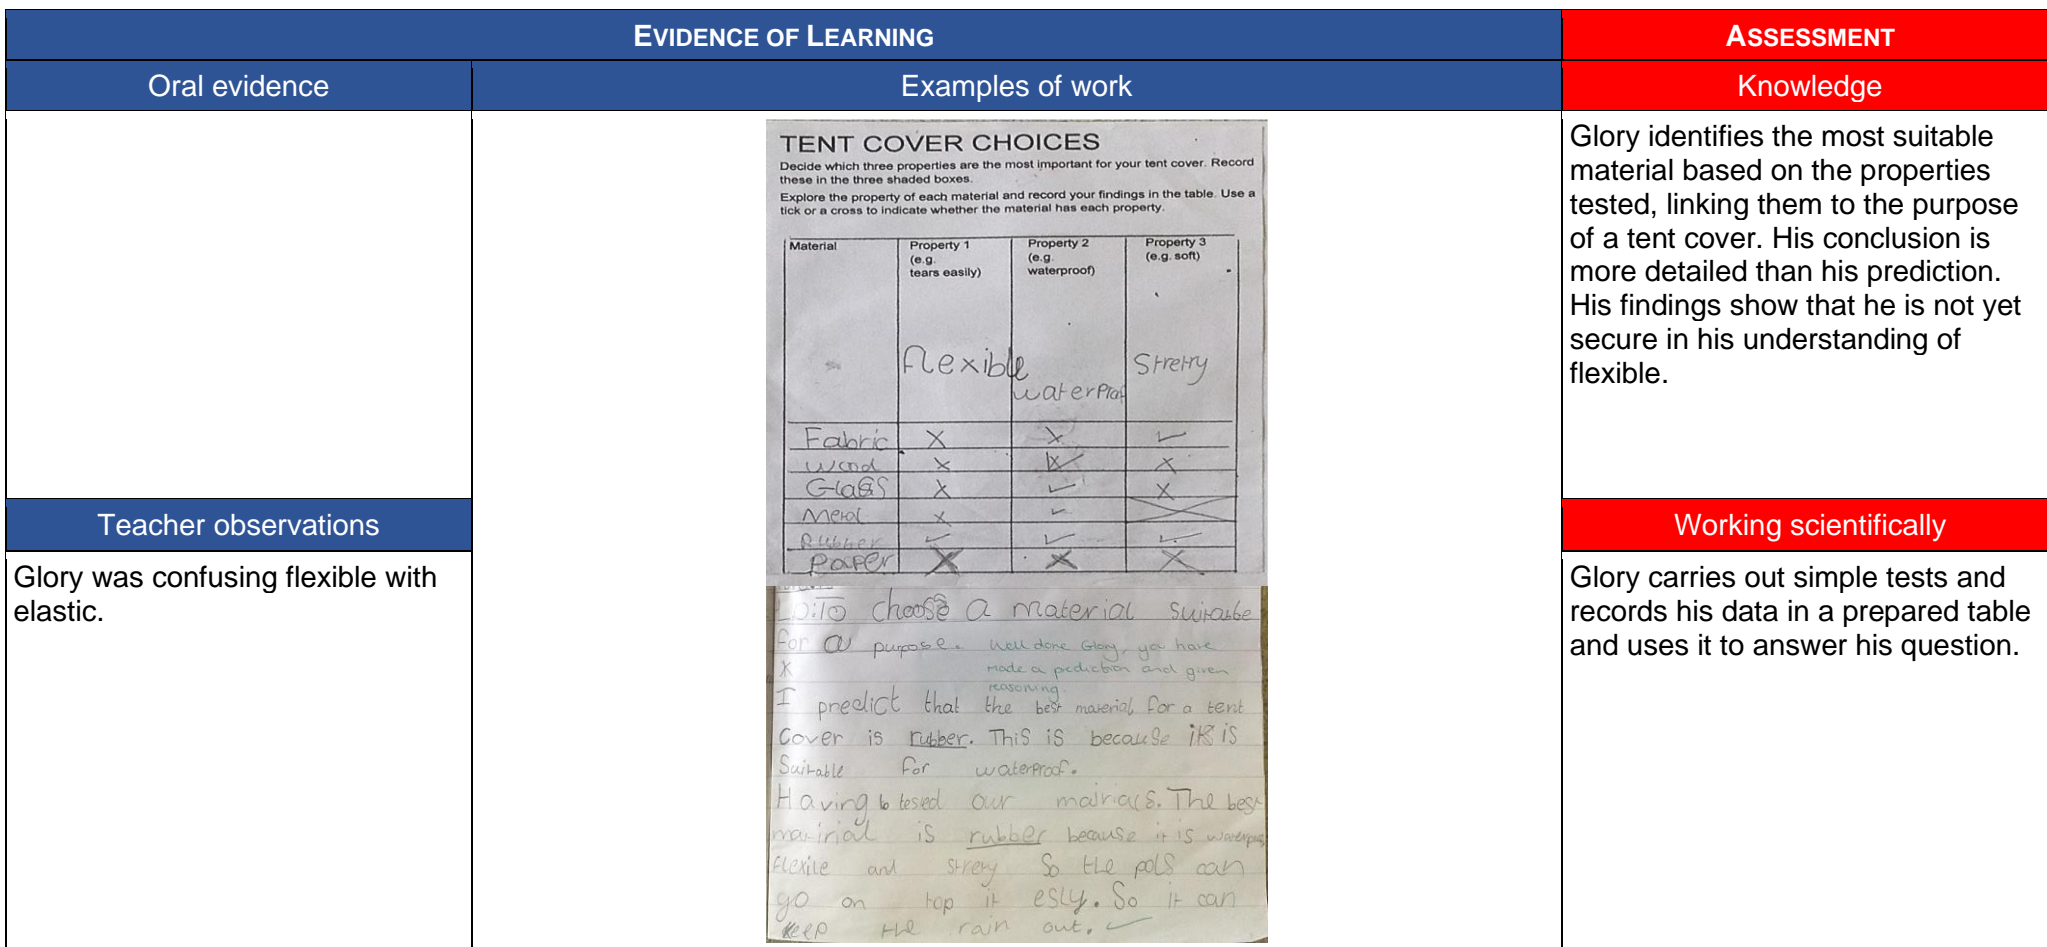 EVIDENCE OF LEARNING
ASSESSMENT
Oral evidence
Examples of work
Knowledge
TENT COVER CHOICES
Decide which three properties are the most important for your tent cover. Record
these in the three shaded boxes.
Explore the property of each material and record your findings in the table. Use a
tick or a cross to indicate whether the material has each property.
Material
Property 1
(e.g.
tears easily)
Property 2
(e.g.
waterproof)
Property 3
(e.g. soft)
flexible
waterproof
Stretry
Fabric X X ✓
wood X ✓ X
Glass X ✓ X
Metal X ✓ X
Rubber ✓ ✓ ✓
Paper X X X
L.O: To choose a material suitable
for a purpose. Well done Glory, you have
made a prediction and given
reasoning.
I predict that the best material for a tent
Cover is rubber. This is because it is
Suitable for waterproof.
Having tesed our matrials. The best
matirial is rubber because it is
flexile and strety So the pols can
go on top it esly. So it can
keep the rain out. ✓
Glory identifies the most suitable
material based on the properties
tested, linking them to the purpose
of a tent cover. His conclusion is
more detailed than his prediction.
His findings show that he is not yet
secure in his understanding of
flexible.
Teacher observations
Glory was confusing flexible with
elastic.
Working scientifically
Glory carries out simple tests and
records his data in a prepared table
and uses it to answer his question.